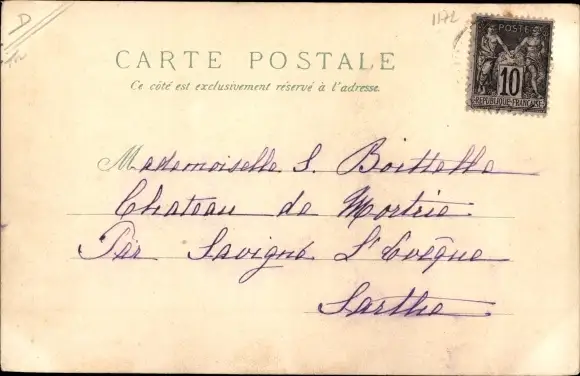 D
1172
POSTES
10
REPUBLIQUE FRANÇAISE
CARTE POSTALE
Ce côté est exclusivement réservé à l'adresse.
Mademoiselle S. Boittelle
Chateau de Mortrie
Par Savigné L'Evêque
Sarthe